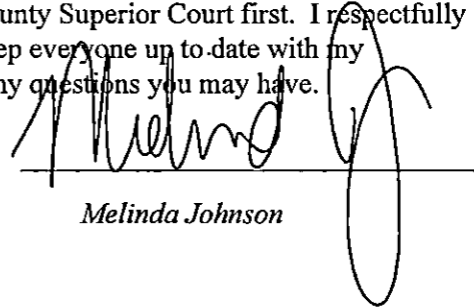 unty Superior Court first. I respectfully
ep everyone up to date with my
ny questions you may have.
Melind J
Melinda Johnson